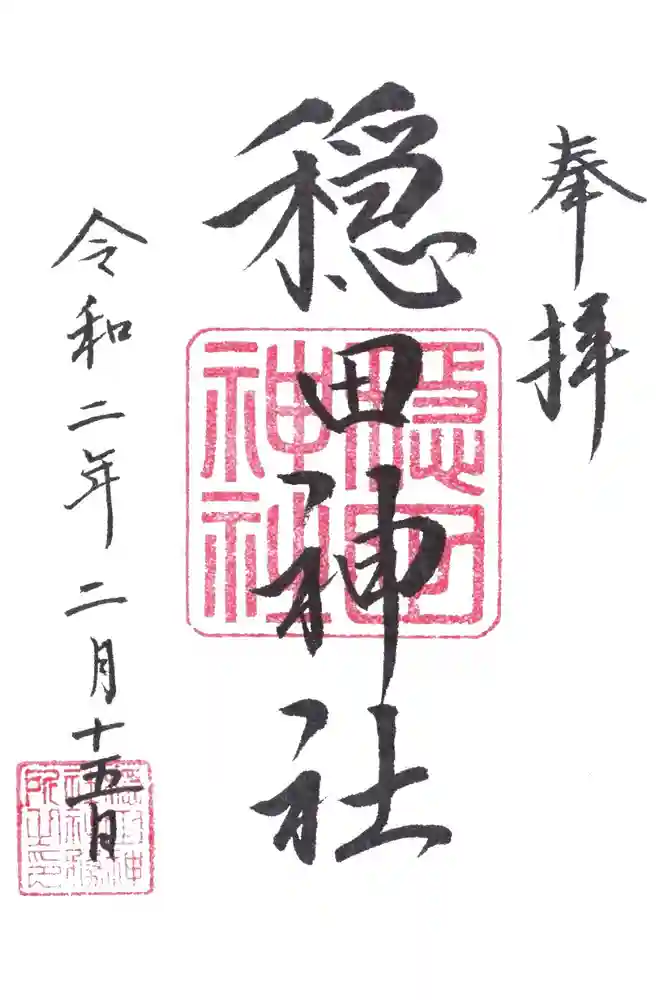 奉拝
穏田神社
令和二年二月十五日
穏田神社
穏田神社務所之印